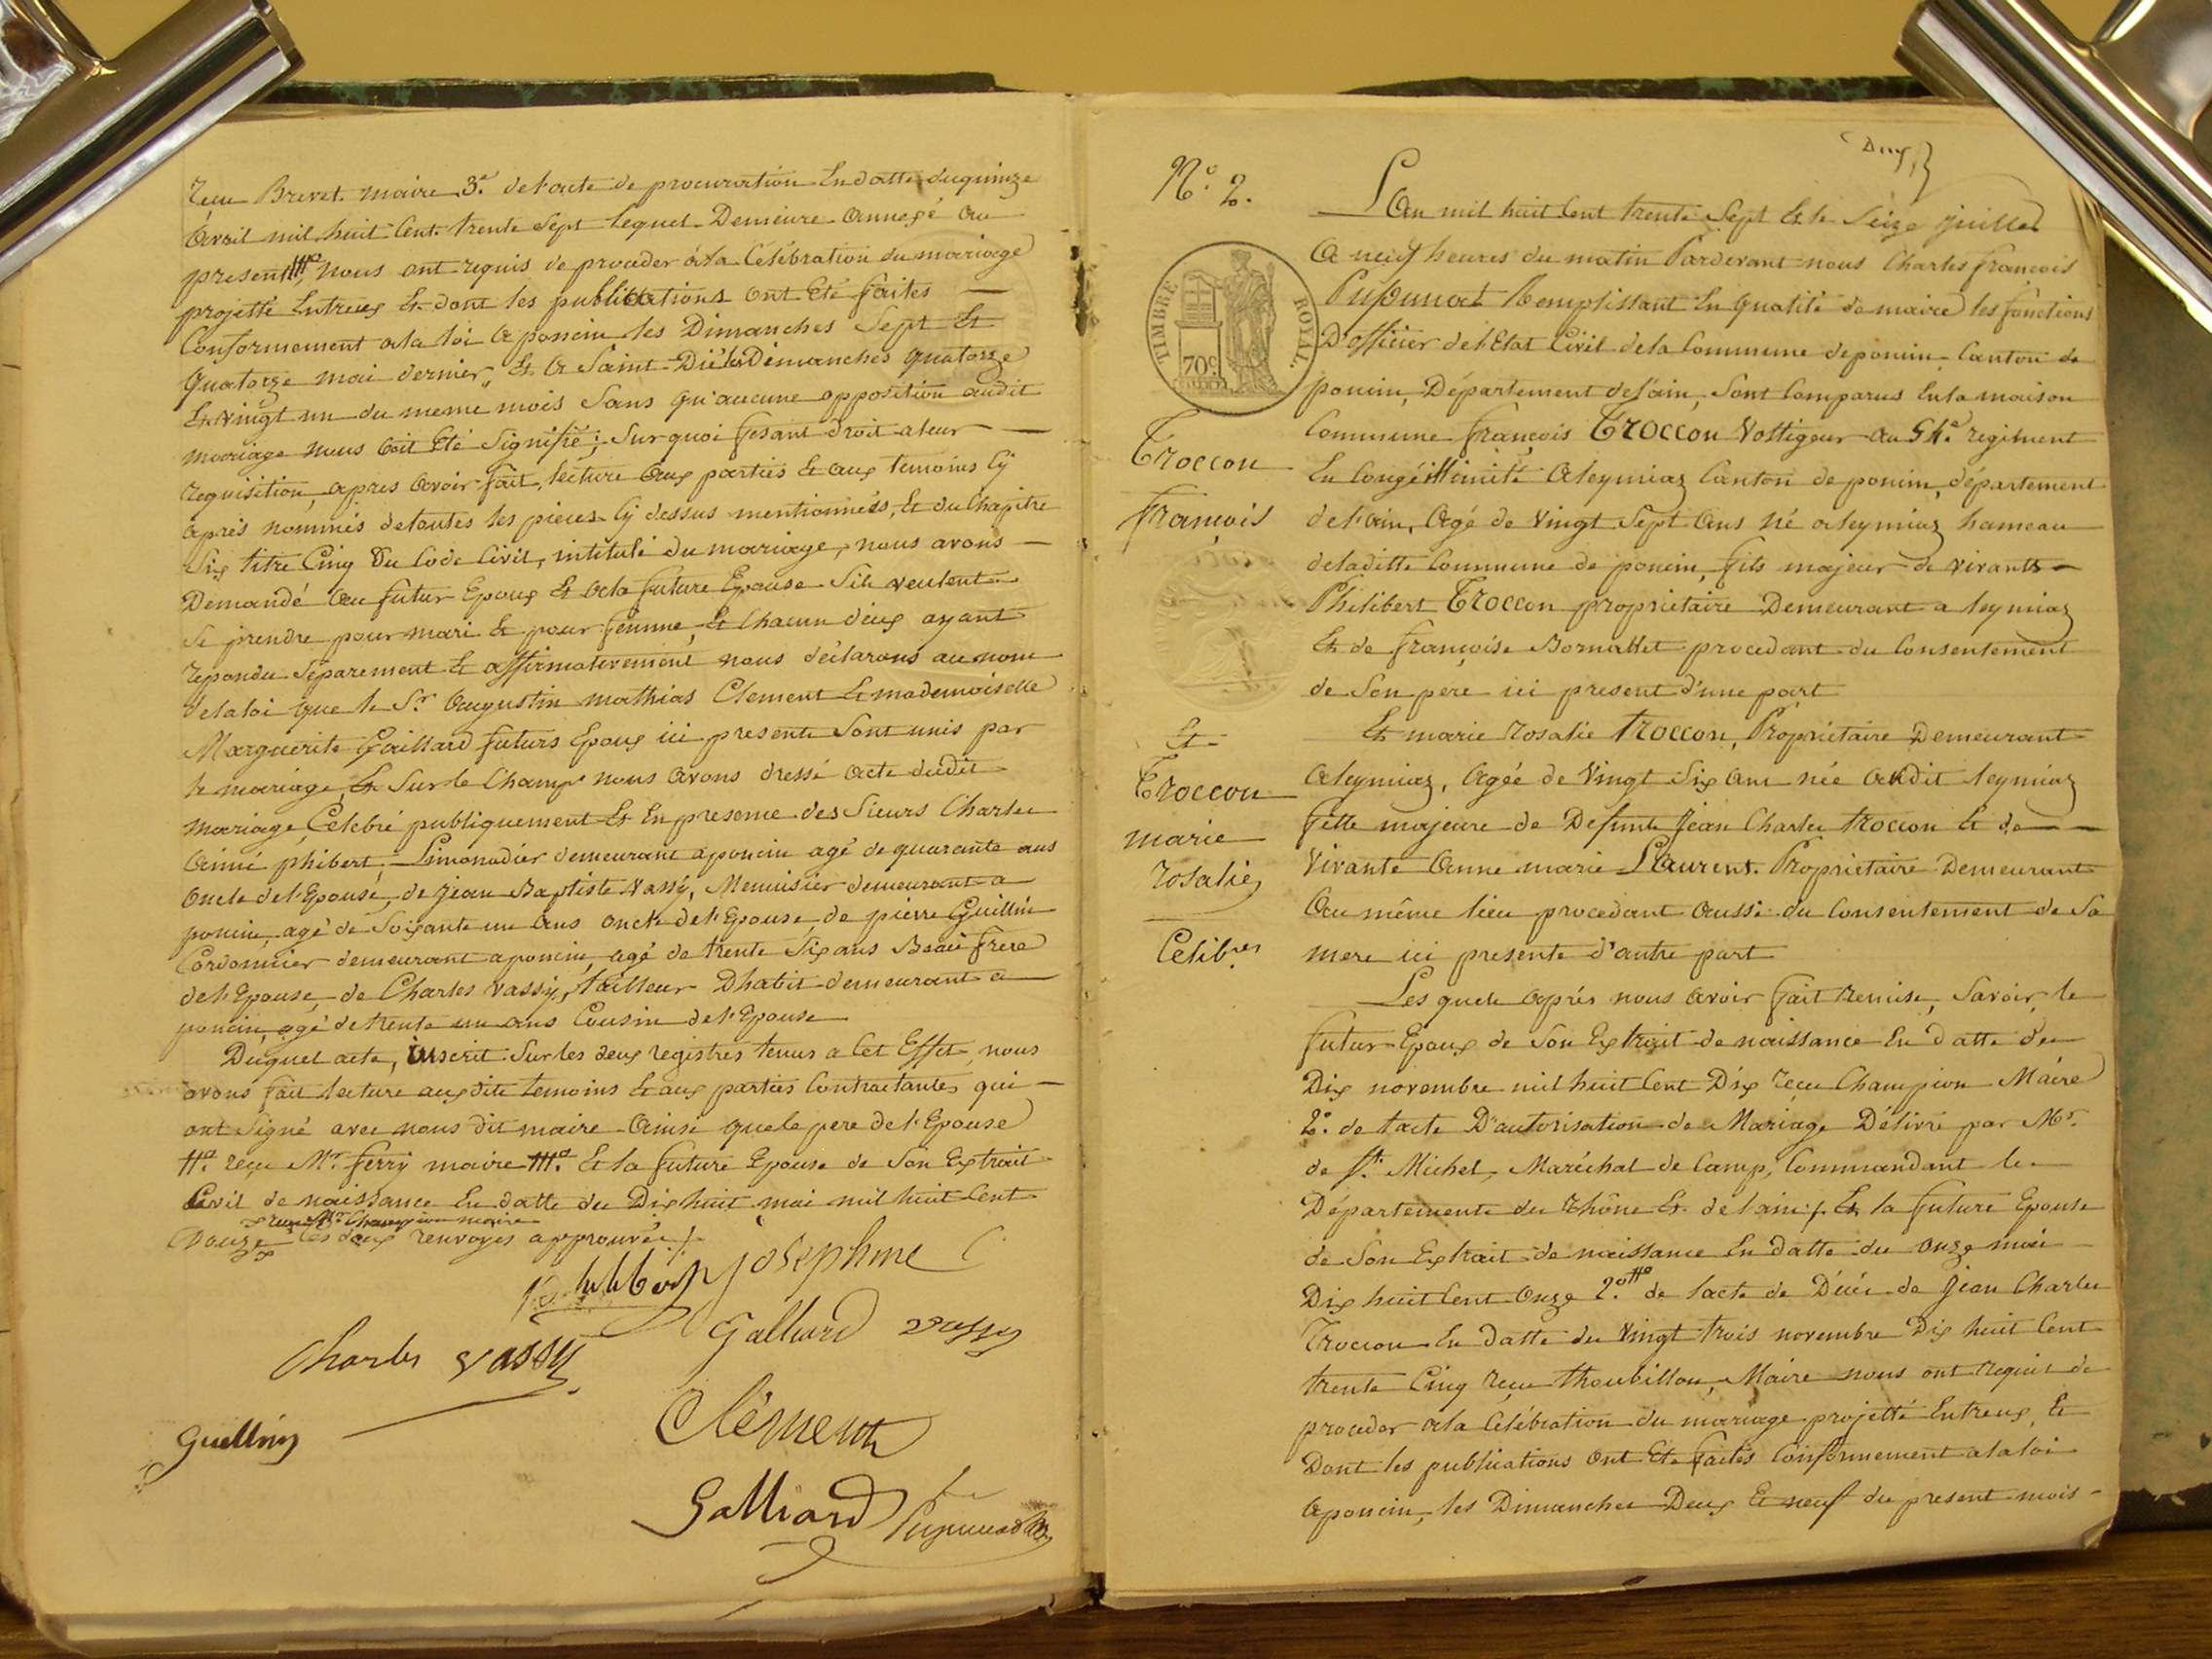 reçu Brevet maire 3.º de l'acte de procuration En datte du quinze
avril mil huit Cent trente Sept lequel Demeure annexé au
present, nous ont requis de proceder à la Celébration du mariage
projetté Entreux Et dont les publications ont Eté faites
Conformement ala loi a poncin les Dimanches Sept Et
Quatorze mai dernier, Et a Saint-Dié les Dimanches quatorze
Et vingt un du meme mois Sans qu'aucune opposition audit
mariage nous ait Eté Signifié; Sur quoi fesant droit a leur
requisition, apres avoir fait lecture aux parties Et aux temoins Cy
après nommés de toutes les pieces Cy dessus mentionnées, Et du Chapitre
Six titre Cinq Du Code Civil, intitulé du mariage, nous avons
Demandé au futur Epoux Et a la future Epouse S'ils veulent
Se prendre pour mari Et pour femme, Et Chacun d'eux ayant
repondu Séparement Et affirmativement nous déclarons au nom
de la loi que le Sr. Augustin mathias Clement Et mademoiselle
Marguerite Gaillard futurs Epoux ici presents Sont unis par
le mariage, Et Sur le Champ nous avons dressé acte dudit
mariage, Celebré publiquement Et En presence des Sieurs Charles
Aimé phibert, Limonadier demeurant a poncin agé de quarante ans
oncle de l'Epouse, de Jean Baptiste Vassy, Menuisier demeurant a
poncin, agé de Soixante un ans oncle de l'Epouse, de pierre Guillin
Cordonnier demeurant a poncin, agé de trente Six ans Beau frere
de l'Epouse, de Charles Vassy, tailleur D'habit demeurant a
poncin, agé de trente un ans Cousin de l'Epouse
Duquel acte, inscrit Sur les deux registres tenus a Cet Effet, nous
avons fait lecture aux dits temoins Et aux parties Contractantes qui
ont Signé avec nous dit maire Ainsi que le pere de l'Epouse
reçu Mr. ferry maire Et la future Epouse de Son Extrait
Civil de naissance En datte du Dix huit mai mil huit Cent
reçu Mr Champion maire
Douze les deux renvoyés approuvés
josephine
Galliard vassy
Charles vassy
Clément
Guillin
Galliard
Dux
N.º 2.
L'An mil huit Cent trente Sept Et le Seize juillet
A neuf heures du matin Pardevant nous Charles françois
Pupunat Remplissant En qualité de maire les fonctions
D'officier de l'Etat Civil de la Commune de poncin Canton de
poncin, Département de l'ain, Sont Comparus En la maison
Commune françois Troccon Voltigeur au 54.e regiment
En Congé illimité a leymiaz Canton de poncin, département
de l'ain, Agé de Vingt Sept ans né a leymiaz hameau
de la ditte Commune de poncin, fils majeur de vivants
Philibert Troccon propriétaire Demeurant a leymiaz
Et de françoise Bornallet procedant du Consentement
de Son pere ici present d'une part
Et marie rosalie troccon, Propriétaire Demeurant
a leymiaz, Agée de Vingt Six ans née audit leymiaz
fille majeure de Defunt Jean Charles troccon Et de
Vivante Anne marie Laurent. Propriétaire Demeurant
Au même lieu procedant aussi du Consentement de Sa
mere ici presente d'autre part
Les quels après nous avoir fait remise, Savoir, le
futur Epoux de Son Extrait de naissance En datte du
Dix novembre mil huit Cent Dix reçu Champion Maire
2.º de l'acte D'autorisation de Mariage Délivré par Mr.
de St. Michel, Maréchal de Camp, Commandant le
Département du Rhône Et de l'ain, Et la future Epouse
de Son Extrait de naissance En datte du onze mai
Dix huit Cent Onze 2.º de l'acte de Décés de Jean Charles
Troccon En datte du Vingt trois novembre Dix huit Cent
trente Cinq reçu thoubillon, Maire nous ont requis de
proceder a la Celébration du mariage projetté Entreux, Et
Dont les publications ont Eté faites Conformement a la loi
a poncin, les Dimanches Deux Et neuf du present mois
TIMBRE ROYAL.
70c
Troccon
françois
Et
Troccon
marie
rosalie
Célib.res